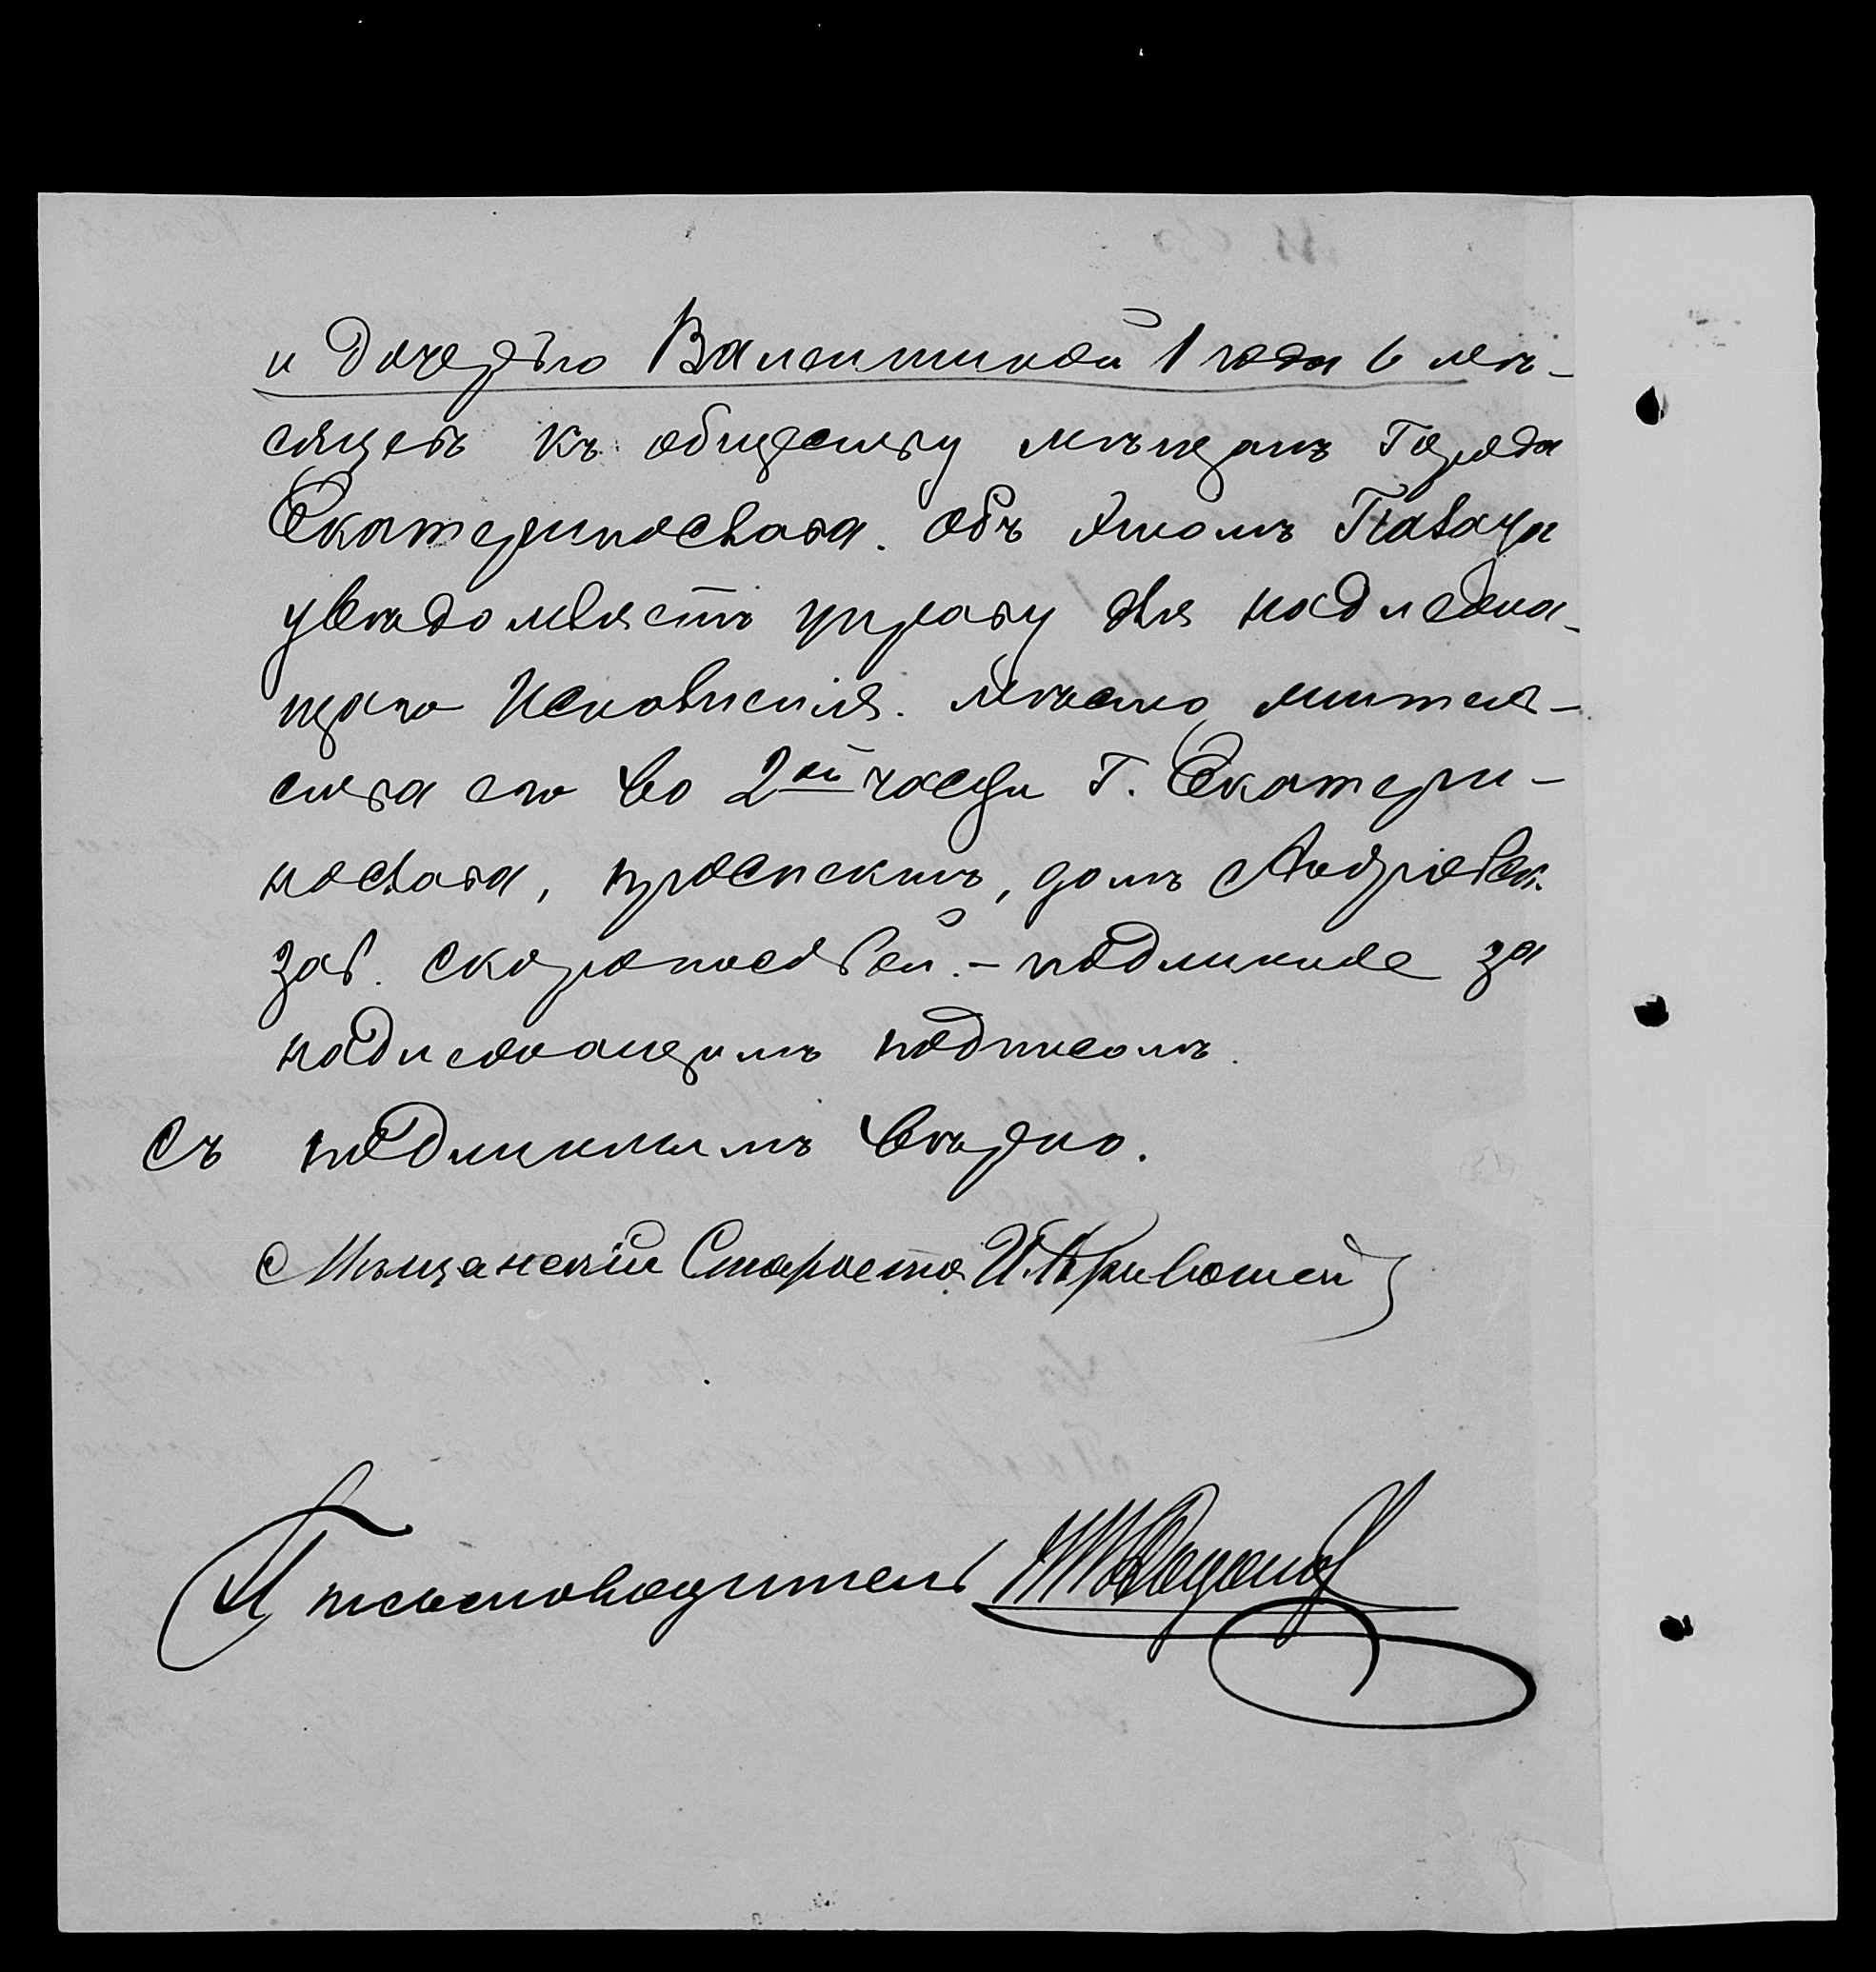 и дочерью Валентиной 1 года 6 мѣ-
сяцевъ къ обществу мѣщанъ города
Екатеринослава. Объ этомъ Палата
увѣдомляетъ управу для надлежа-
щаго исполненія. Мѣсто житель-
ства его во 2ой части г. Екатери-
нослава, проспектъ, домъ
зав. скоропослѣй. - подлинное за
надлежащимъ подписомъ.
Съ подлиннымъ вѣрно.
Мѣщанскій Староста И. Кривошей
Письмоводитель